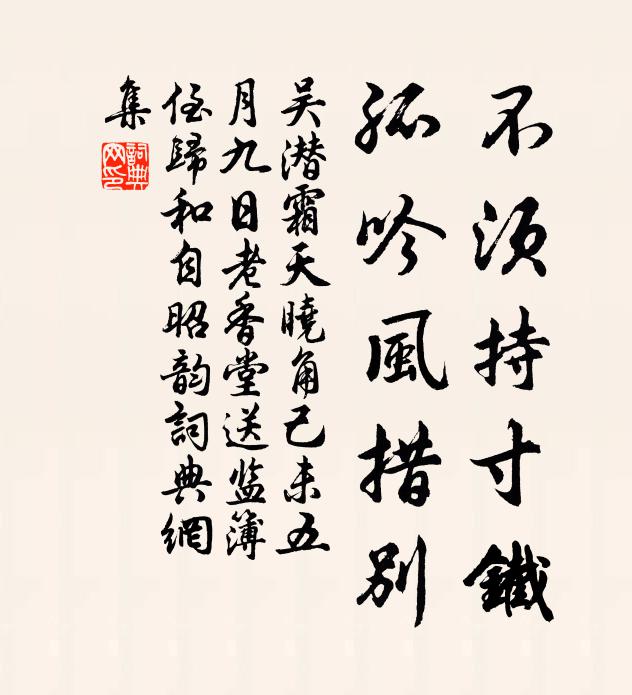 不须持寸鐵
孤吟風措別
吴潜霜天曉角己未五
月九日老香堂送监簿
侄歸和自昭韵詞典網
集
詞典網印